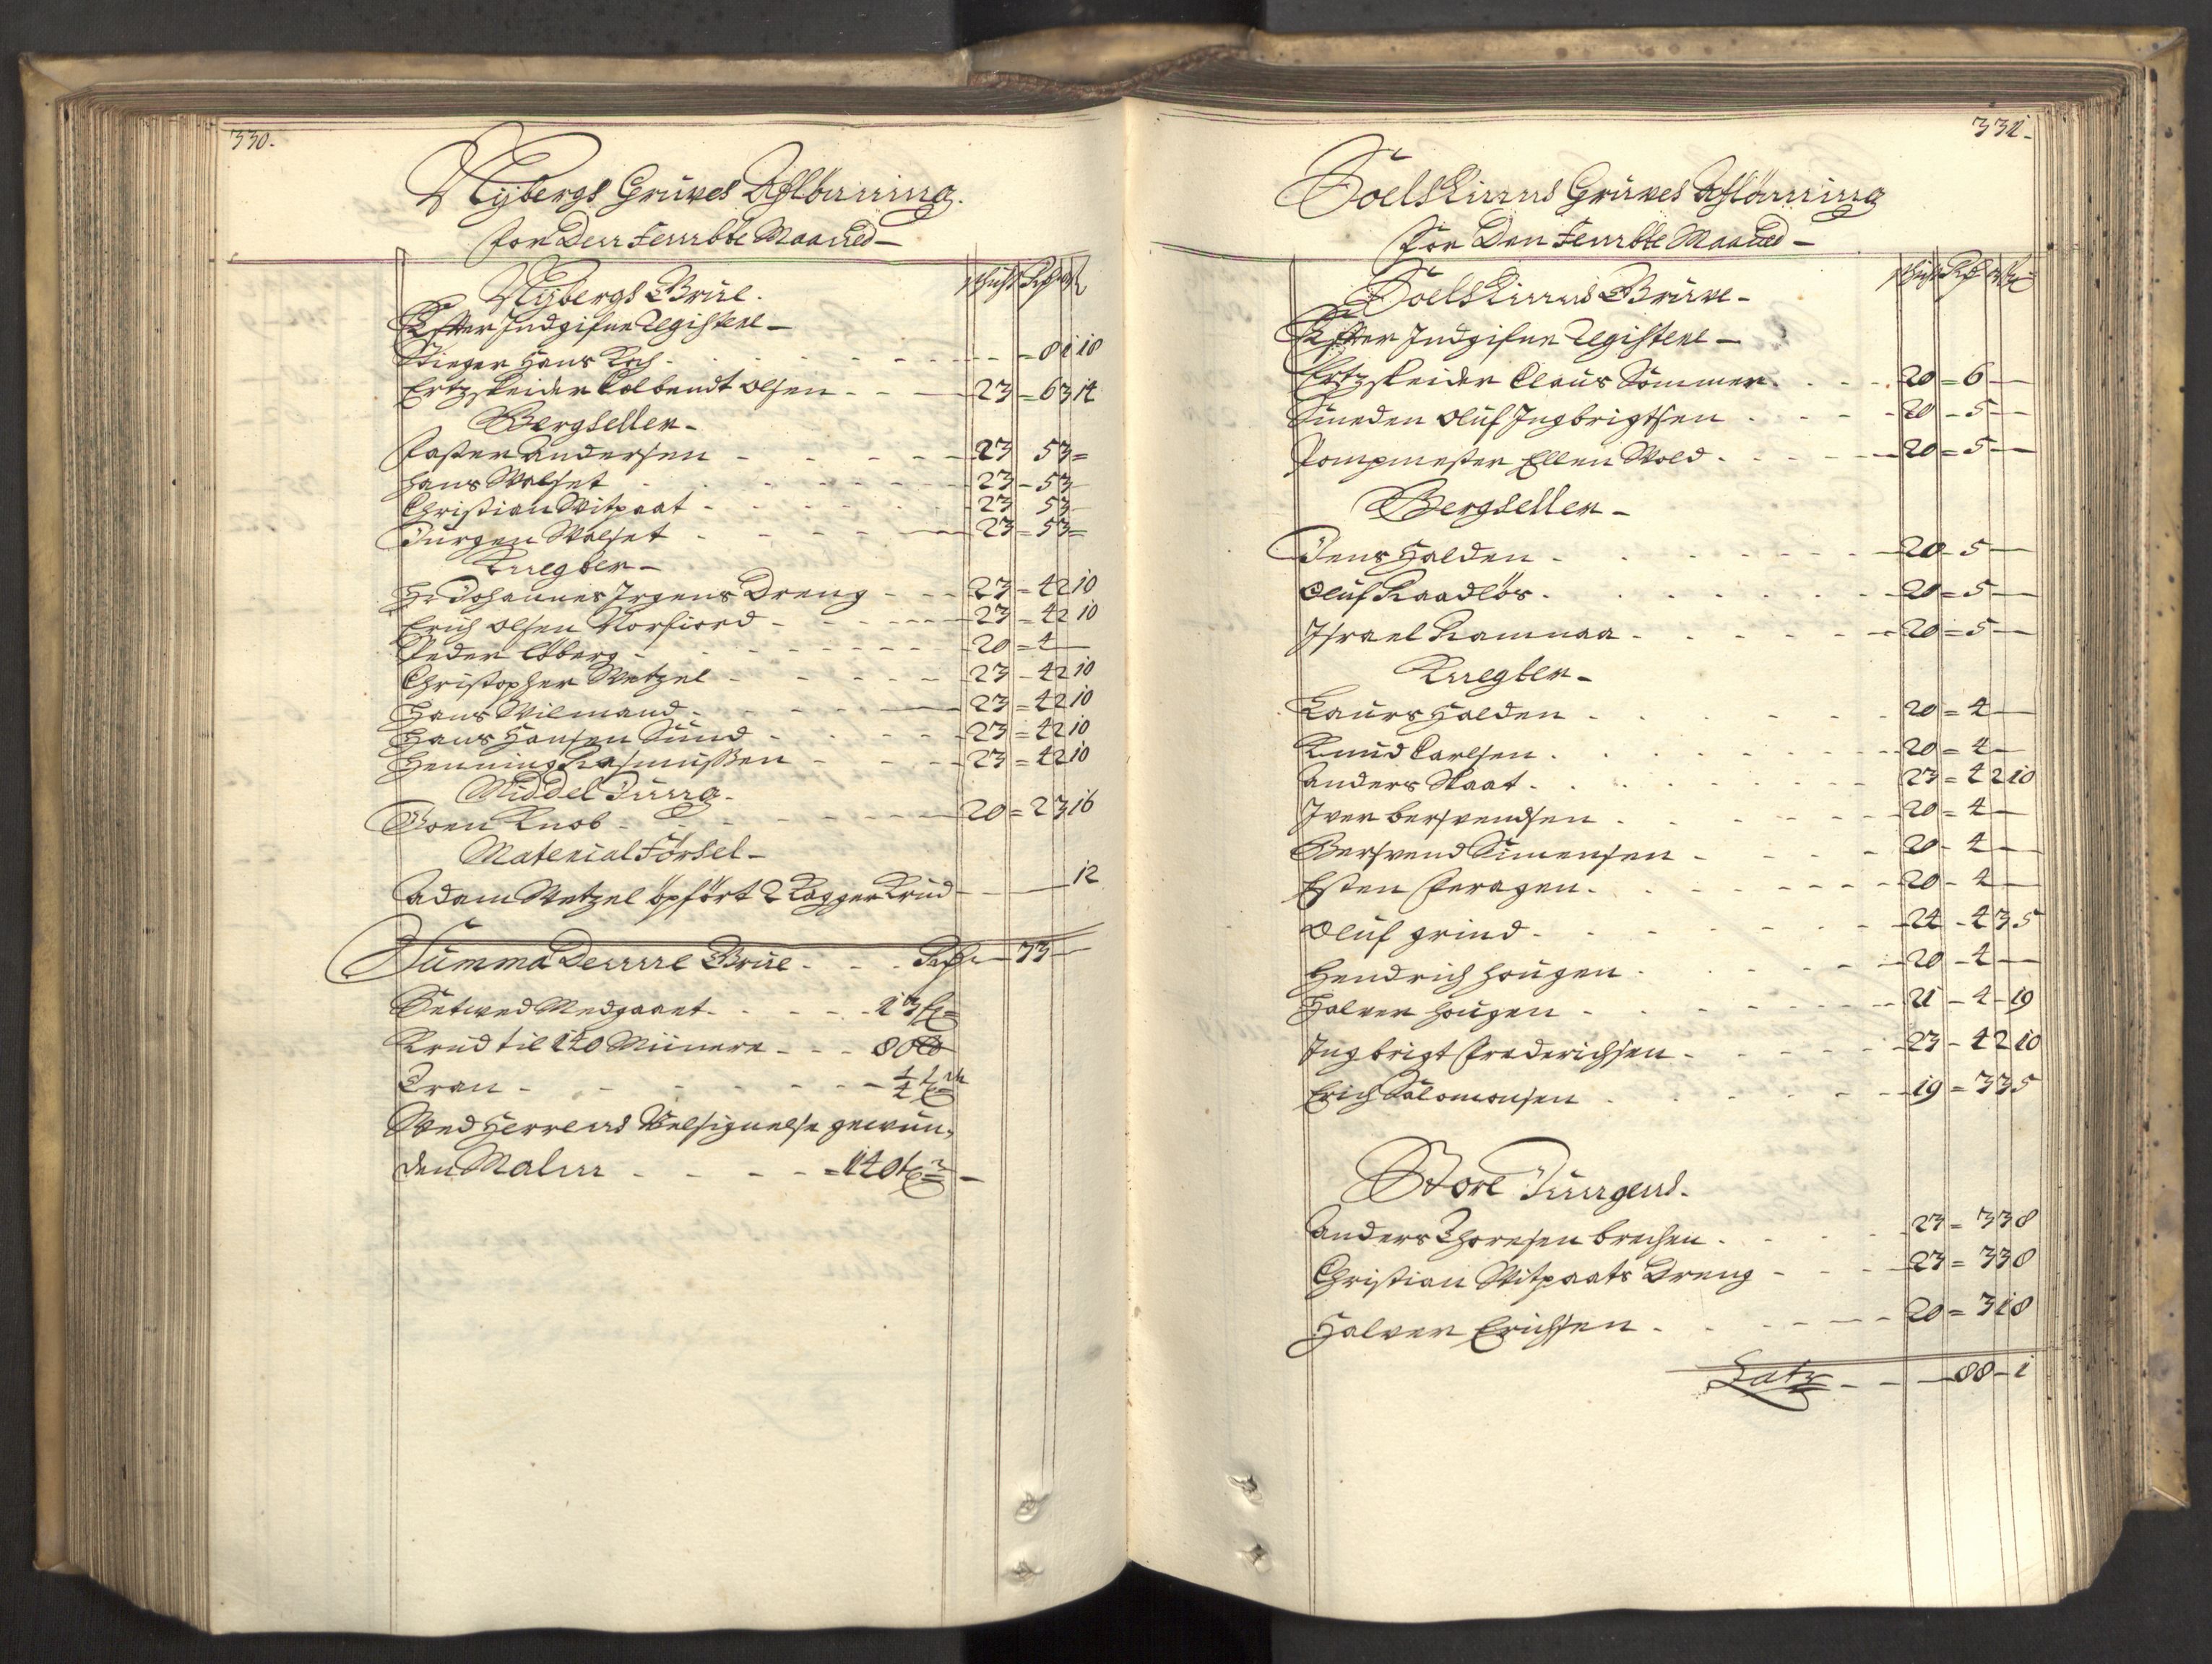 330.
Nybergs Gruves Afløning.
for Den Fembte Maaned
Nybergs Grue.
Efter Indgifne Registere
Stieger Hans Koch - 8 1 18
Ertzskeider Colbendt Olsen - 23 = 6 3 14
Bergseller
Faster Andersen - 23 5 3 =
Hans Walset - 23 - 5 3
Christian Witpaat - 23 5 3
Jürgen Walset - 23 = 5 3 =
Knegter
Hr Johannes Irgens Dreng - 23 = 4 2 10
Erich Olsen Norfiord - 23 = 4 2 10
Peder Öberg - 20 = 4
Christopher Wetzel - 23 - 4 2 10
Hans Wilmand - 23 = 4 2 10
Hans Hansen Sund - 23 = 4 2 10
Henning Rasmussen - 23 = 4 2 10
Middel Junga
Joen Knob - 20 = 2 3 16
Material Førsel
Adam Wetzel opført 2 Kagger Krud - 12
Summa Denne Grue - 33
Setwed Medgaaet - 13
Krud til 140 Miinere - 80
Tran - 1/4
Wed Herrens Velsignelse gewun-
den Malm - 140
331.
Soelskinns Gruves Afløning
for Den Fembte Maaned
Soelskinns Gruve
Efter Indgifne Registere
Ertzskeider Claus Sommer - 20 = 6
Smeden Oluf Ingbrigtsen - 20 - 5
Pompmester Ellen Wold - 20 = 5
Bergseller
Jens Halden - 20 - 5
Oluf Raadløs - 20 = 5
Israel Ramnaa - 20 = 5
Knegter
Laurs Halden - 20 = 4
Knud Carlsen - 20 = 4
Anders Staat - 23 = 4 2 10
Iver Berfvendsen - 20 = 4
Berfvend Simensen - 20 - 4
Esten Feragen - 20 - 4
Oluf Grind - 24 - 4 3 5
Hendrich Hougen - 20 - 4
Halvor Hougen - 21 - 4 - 19
Ingbrigt Frederichsen - 23 - 4 2 10
Erich Salomonsen - 19 = 3 3 5
Store Jungens
Anders Thoresen Brechen - 23 = 3 3 8
Christian Witpaats Dreng - 23 = 3 3 8
Halvor Erichsen - 20 = 3 1 8
Latz - 88 - 1